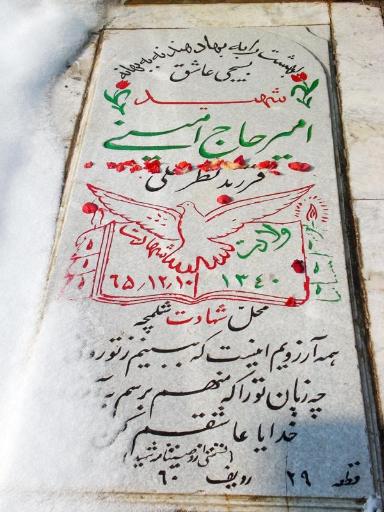 بهشت را به بها دهند نه به بهانه
بسیجی عاشق
شهید
امیر حاج امینی
فرزند نظر علی
ولادت
شهادت
۱۳۴۰
۶۵٫۱۲٫۱۰
محل شهادت شلمچه
همه آرزویم اینست که ببینم از تو رو
چه زیان تو را که منهم برسم به آ
خدایا عاشقم کن
(قسمتی از وصیتنامه شهید)
قطعه ۲۹ ردیف ۶۰